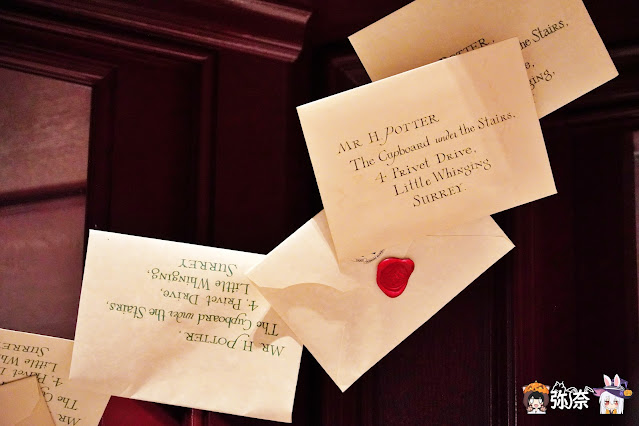 POTTER,
the Stairs,
MR H POTTER
The Cupboard under the Stairs,
4 Privet Drive,
Little Whinging
SURREY.
MR H POTTER,
The Cupboard under the Stairs,
4, Privet Drive,
Little Whinging,
SURREY
The
Little
SURREY
弥奈